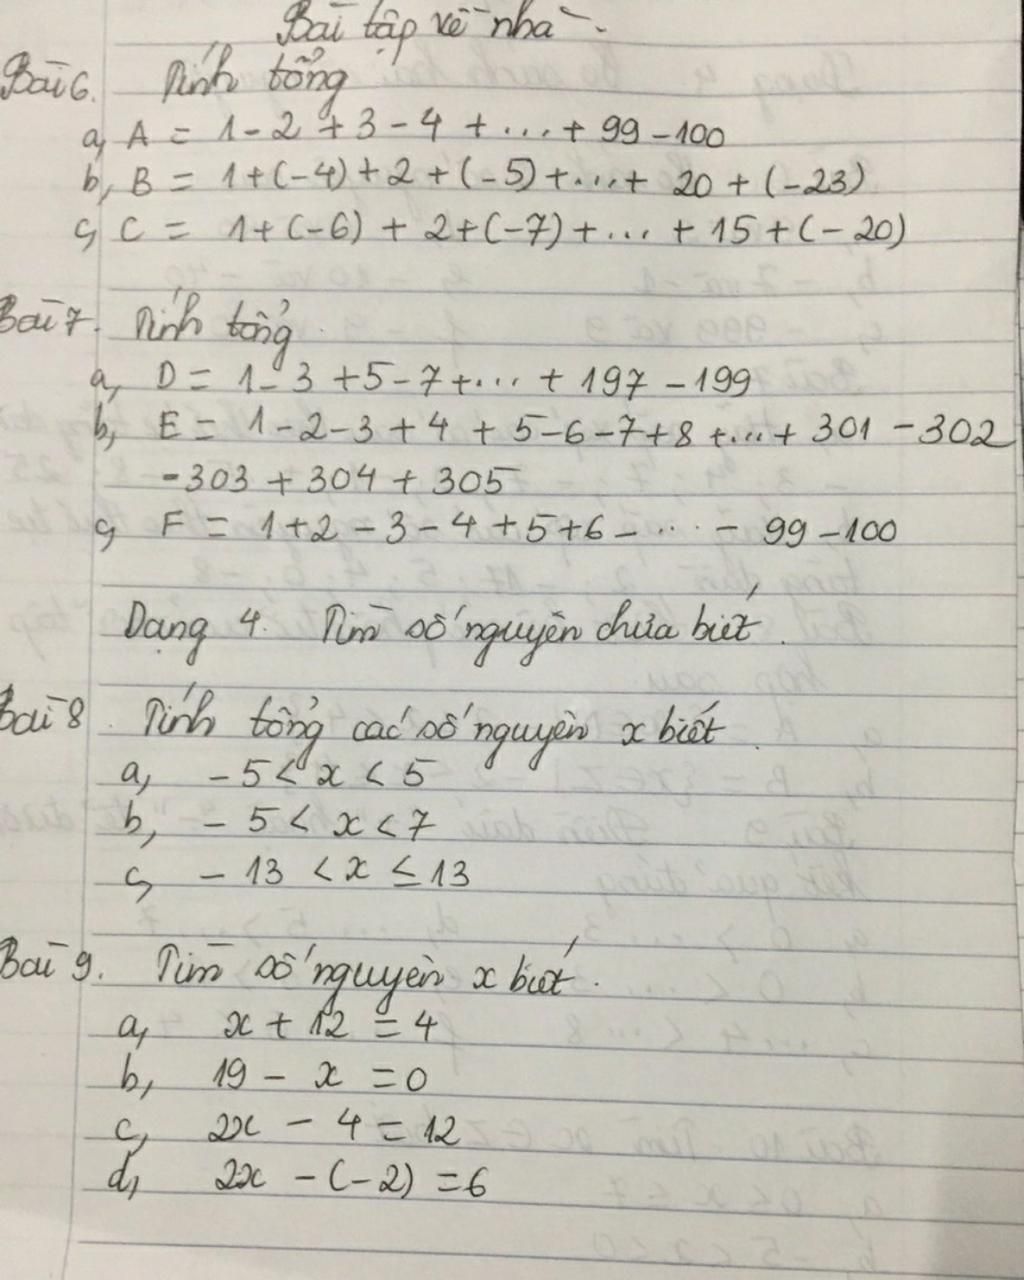 Bài tập về nhà.
Bài 6. Tính tổng
a, A = 1 - 2 + 3 - 4 + ... + 99 - 100
b, B = 1 + (-4) + 2 + (-5) + ... + 20 + (-23)
c, C = 1 + (-6) + 2 + (-7) + ... + 15 + (-20)
Bài 7. Tính tổng.
a, D = 1 - 3 + 5 - 7 + ... + 197 - 199
b, E = 1 - 2 - 3 + 4 + 5 - 6 - 7 + 8 + ... + 301 - 302
- 303 + 304 + 305
c, F = 1 + 2 - 3 - 4 + 5 + 6 - ... - 99 - 100
Dạng 4. Tìm số nguyên chưa biết.
Bài 8. Tính tổng các số nguyên x biết.
a, - 5 < x < 5
b, - 5 < x < 7
c, - 13 < x ≤ 13
Bài 9. Tìm số nguyên x biết.
a, x + 12 = 4
b, 19 - x = 0
c, 2x - 4 = 12
d, 2x - (-2) = 6